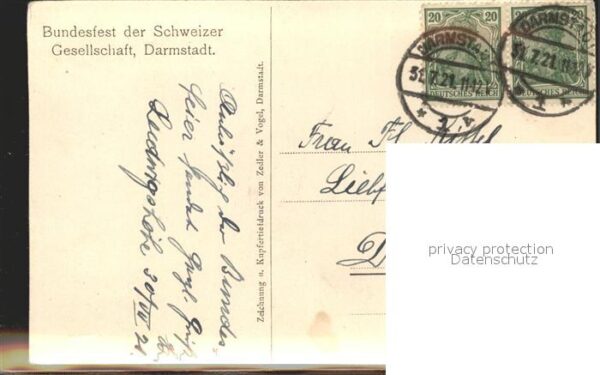 Bundesfest der Schweizer
Gesellschaft, Darmstadt.
Anläßlich der Bundes-
feier sendet herzl. Grüße
Ludwigshöhe 30/VII 21.
Zeichnung u. Kupfertiefdruck von Zedler & Vogel, Darmstadt.
20
20
DEUTSCHES REICH
DEUTSCHES REICH
DARMSTADT
31.7.21.11-12
* 1 *
DARMSTADT
31.7.21.11-12
* 1 *
Frau Fr.
Liebf
D
privacy protection
Datenschutz